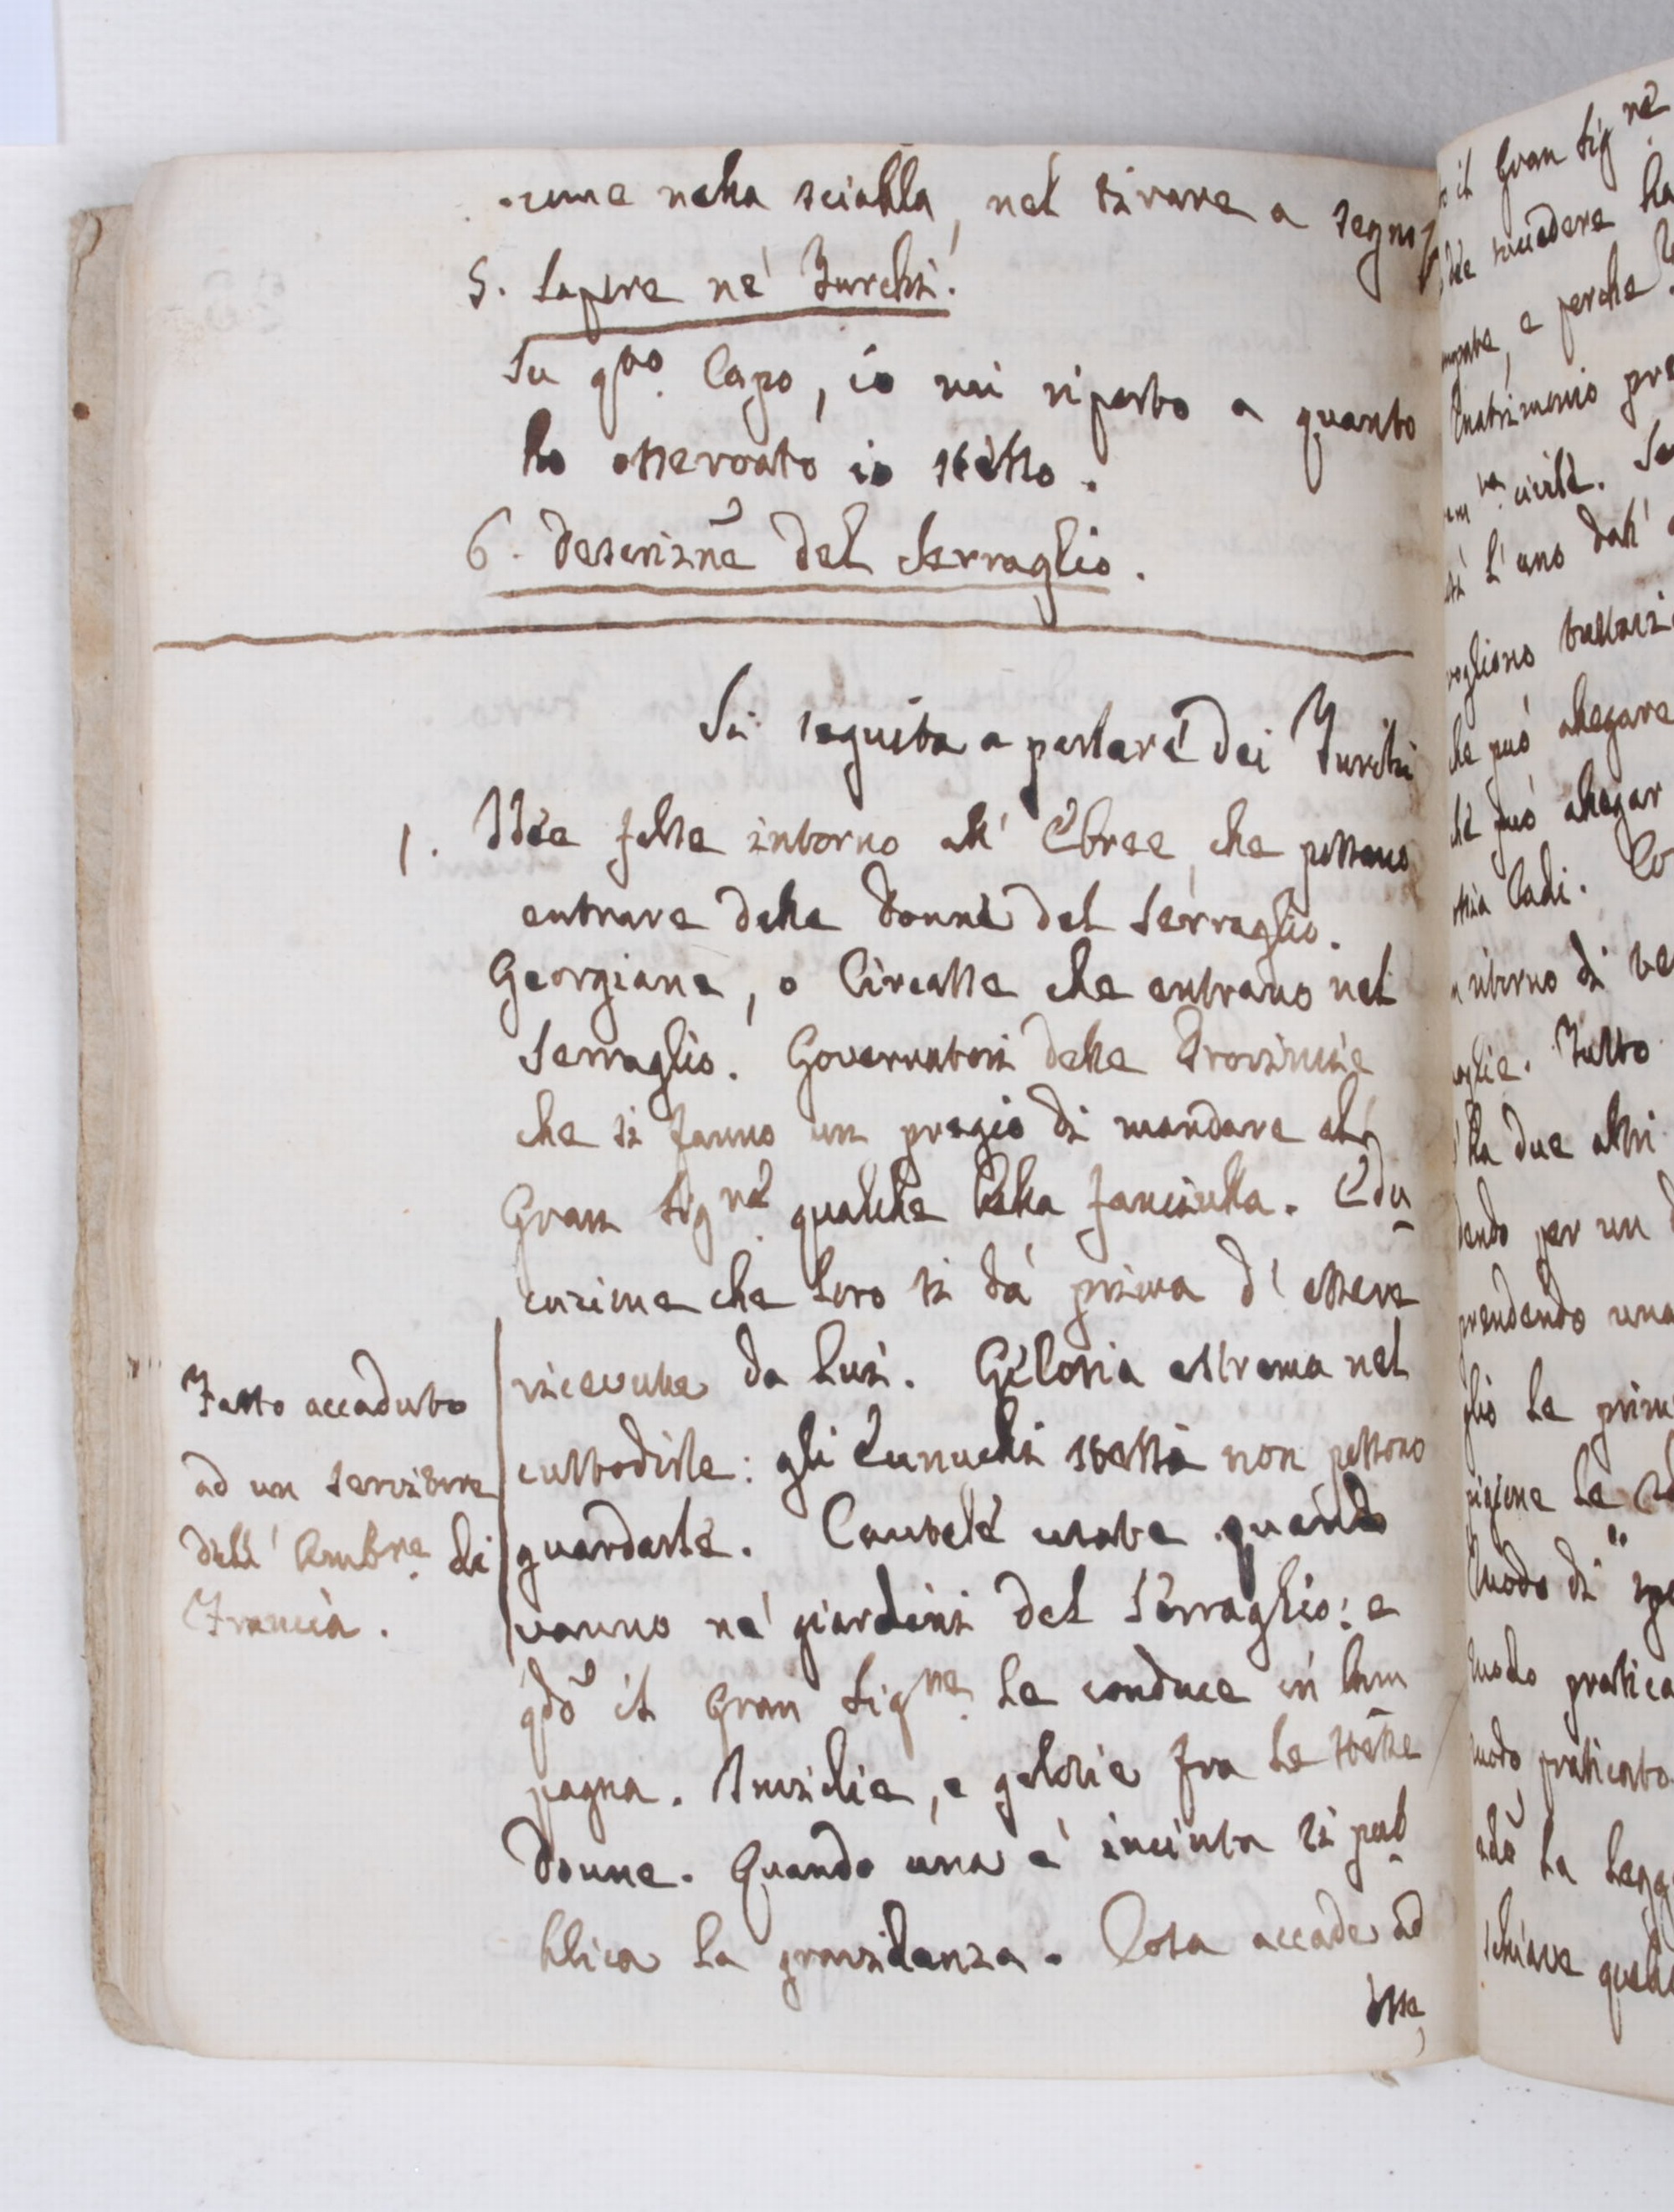 -zione nella sciabla, nel tirare a segno
5. Sapere ne' Turchi.
Su q.to Capo, io mi riporto a quanto
ho osservato io stesso.
6. Descrizñe del Serraglio.
Si seguita a parlare dei Turchi
1. Idee false intorno all' Ebree, che possano
entrare dalle Donne del Serraglio.
Georgiane, o Circasse che entrano nel
Serraglio. Governatori delle Provincie
che si fanno un pregio di mandare al
Gran Sig.re qualche bella fanciulla. Edu
cazione che loro si dà prima d' essere
ricevute da lui. Gelosia estrema nel
custodirle: gli Eunuchi stessi non possono
guardarle. Cautele usate quando
vanno ne' giardini del Serraglio: e
qdo il Gran Sig.re le conduce in Cam
pagna. Invidie, e gelosie fra le stesse
Donne. Quando una è incinta si pub
blica la gravidanza. Cosa accade ad
esse,
Fatto accaduto
ad un servitore
dell' Ambre. di
Francia.
il Gran Sig.re
succedere
e perche
Matrimonio
civile. Se
l' uno dall'
vogliono
che può allegare
che può allegar
Cadi. Co
ritorno di
Tutto
ha due altri
per un
prendendo una
le prim
Modo di
Modo pratica
Modo praticato
la legg
schiave quell